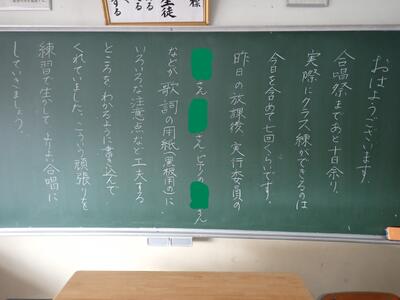 おはようございます。
合唱祭まであと十日余り。
実際にクラス練ができるのは
今日を含めて七回くらいです。
昨日の放課後、実行委員の
さん、さん、ピアノのさん
などが歌詞の用紙(黒板用の)に
いろいろな注意点など工夫する
ところをわかるように書き込んで
くれていました。こういう頑張りを
練習で生かして、よりよい合唱に
していきましょう。